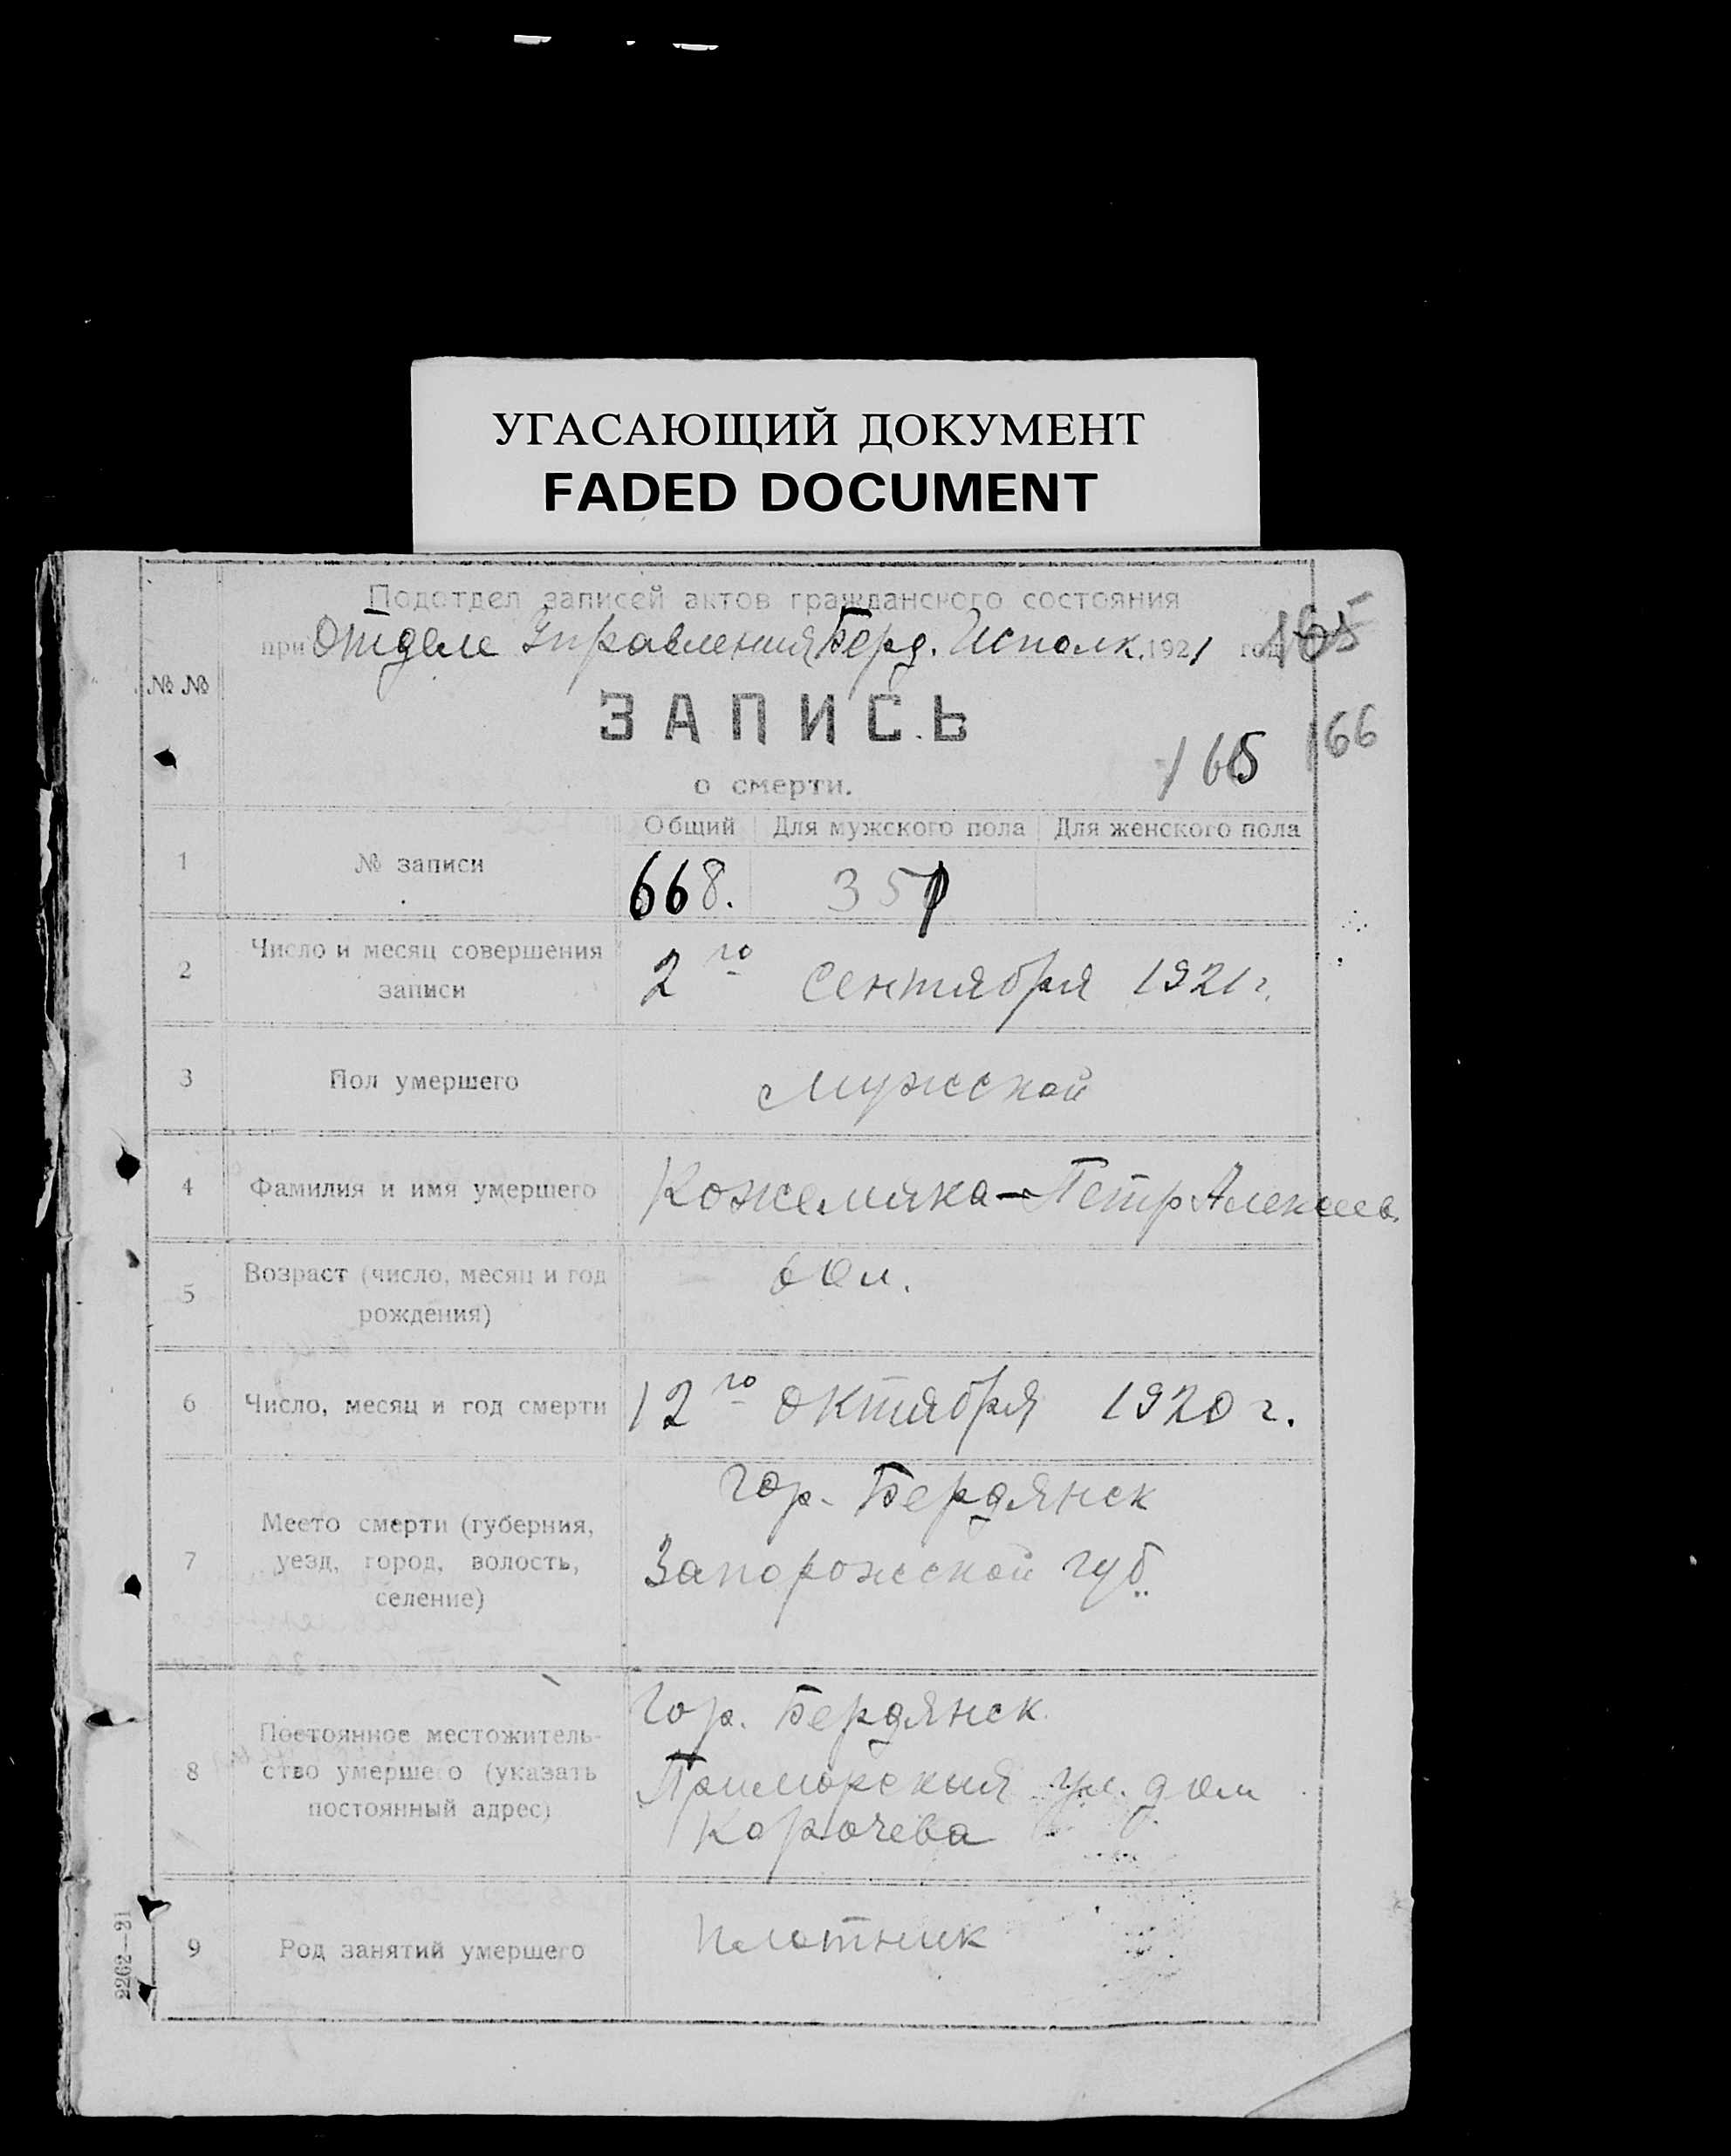 УГАСАЮЩИЙ ДОКУМЕНТ
FADED DOCUMENT
Подотдел записей актов гражданского состояния
при Отделе Управления Берд. Исполк. 1921 год
165
№ №
ЗАПИСЬ
о смерти.
165
166
Общий Для мужского пола Для женского пола
1 № записи 668. 351
2 Число и месяц совершения
записи
2го Сентября 1921 г.
3 Пол умершего Мужской
4 Фамилия и имя умершего Кожемяка - Петр Алексеев.
5 Возраст (число, месяц и год
рождения)
60 л.
6 Число, месяц и год смерти 12го октября 1920 г.
7 Место смерти (губерния,
уезд, город, волость,
селение)
гор. Бердянск
Запорожской губ.
8 Постоянное местожитель-
ство умершего (указать
постоянный адрес)
Гор. Бердянск.
Приморская ул. дом
Корочева
9 Род занятий умершего Плотник
2262—21